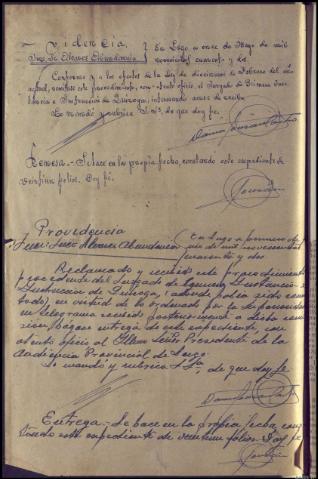 Providencia
Juez Sr. Alvarez Abundancia
En Lugo a once de Mayo de mil
novecientos cuarenta y dos.
Conforme y a los efectos de la Ley de diecinueve de Febrero del año
actual, remítase este procedimiento, con atento oficio, al Juzgado de Primera Instancia
e Instrucción de Quiroga, interesando acuse de recibo.
Lo mandó y rubrica S.Sª. de que doy fe.
Remesa.- Se hace en la propia fecha, constando este expediente de
veintiun folios. Doy fé.
Providencia
Juez: Señor Alvarez Abundancia
En Lugo a primero de
de mil novecientos
cuarenta y dos
Reclamado y recibido este procedimiento
procedente del Juzgado de primera Instancia e
Instrucción de Quiroga,
en virtud de lo ordenado por la Superioridad
en telegrama recibido posteriormente a dicha remisión
Hágase entrega de este expediente, con
atento oficio al Iltmo Señor Presidente de la
Audiencia Provincial de Lugo.
Lo mandó y rubrica S.Sª. de que doy fe
Entrega.- Se hace en la propia fecha, constando
este expediente de veintiun folios. Doy fe